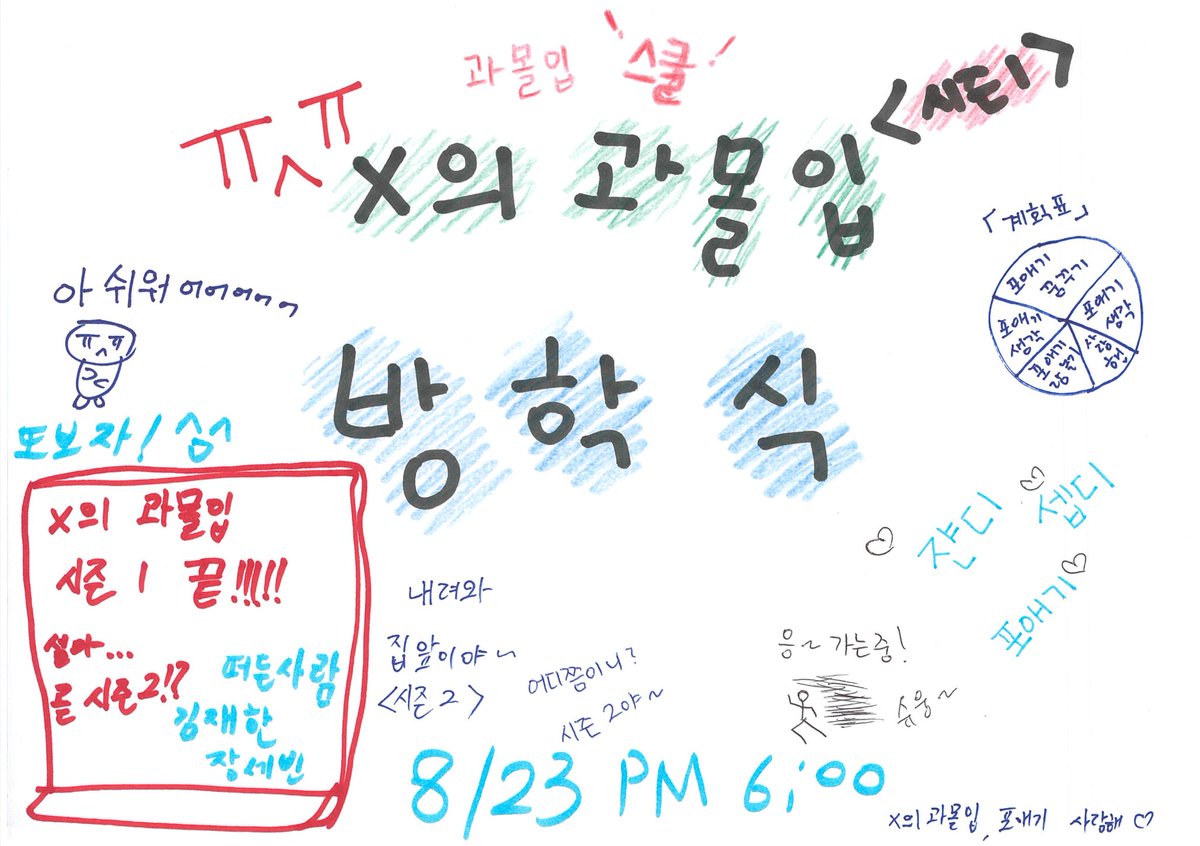 과몰입 '스쿨!
<시즌1>
ㅠㅅㅠ
X의 과몰입
방학식
「계획표」
포애기 꿈꾸기
포애기 생각
사랑해
포애기랑 놀기
포애기 생각
아 쉬워어어어어어
ㅠㅅㅠ
또보자! 섬
X의 과몰입
시즌 1 끝!!!!!
설마...
곧 시즌2!?
떠든사람
김재한
장세빈
내려와
집 앞이야~
<시즌 2>
어디쯤이니?
시즌 2야~
응~ 가는중!
슈웅~
쟌디♡ 셉디
♡
포애기♡
8/23 PM 6:00
X의 과몰입, 포애기 사랑해♡